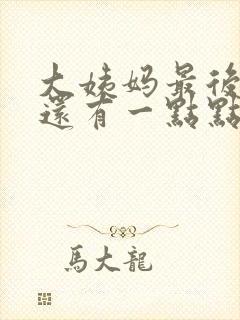 大姨妈最後
還有一點點
馬大龍